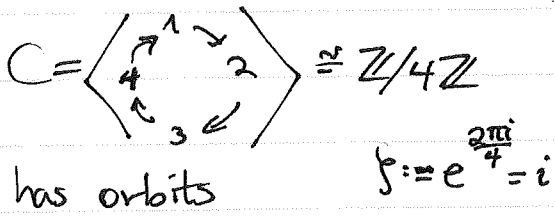 C = ⟨ 1 → 2 → 3 → 4 → ⟩ ≅ ℤ/4ℤ
has orbits ζ := e^{2πi/4} = i